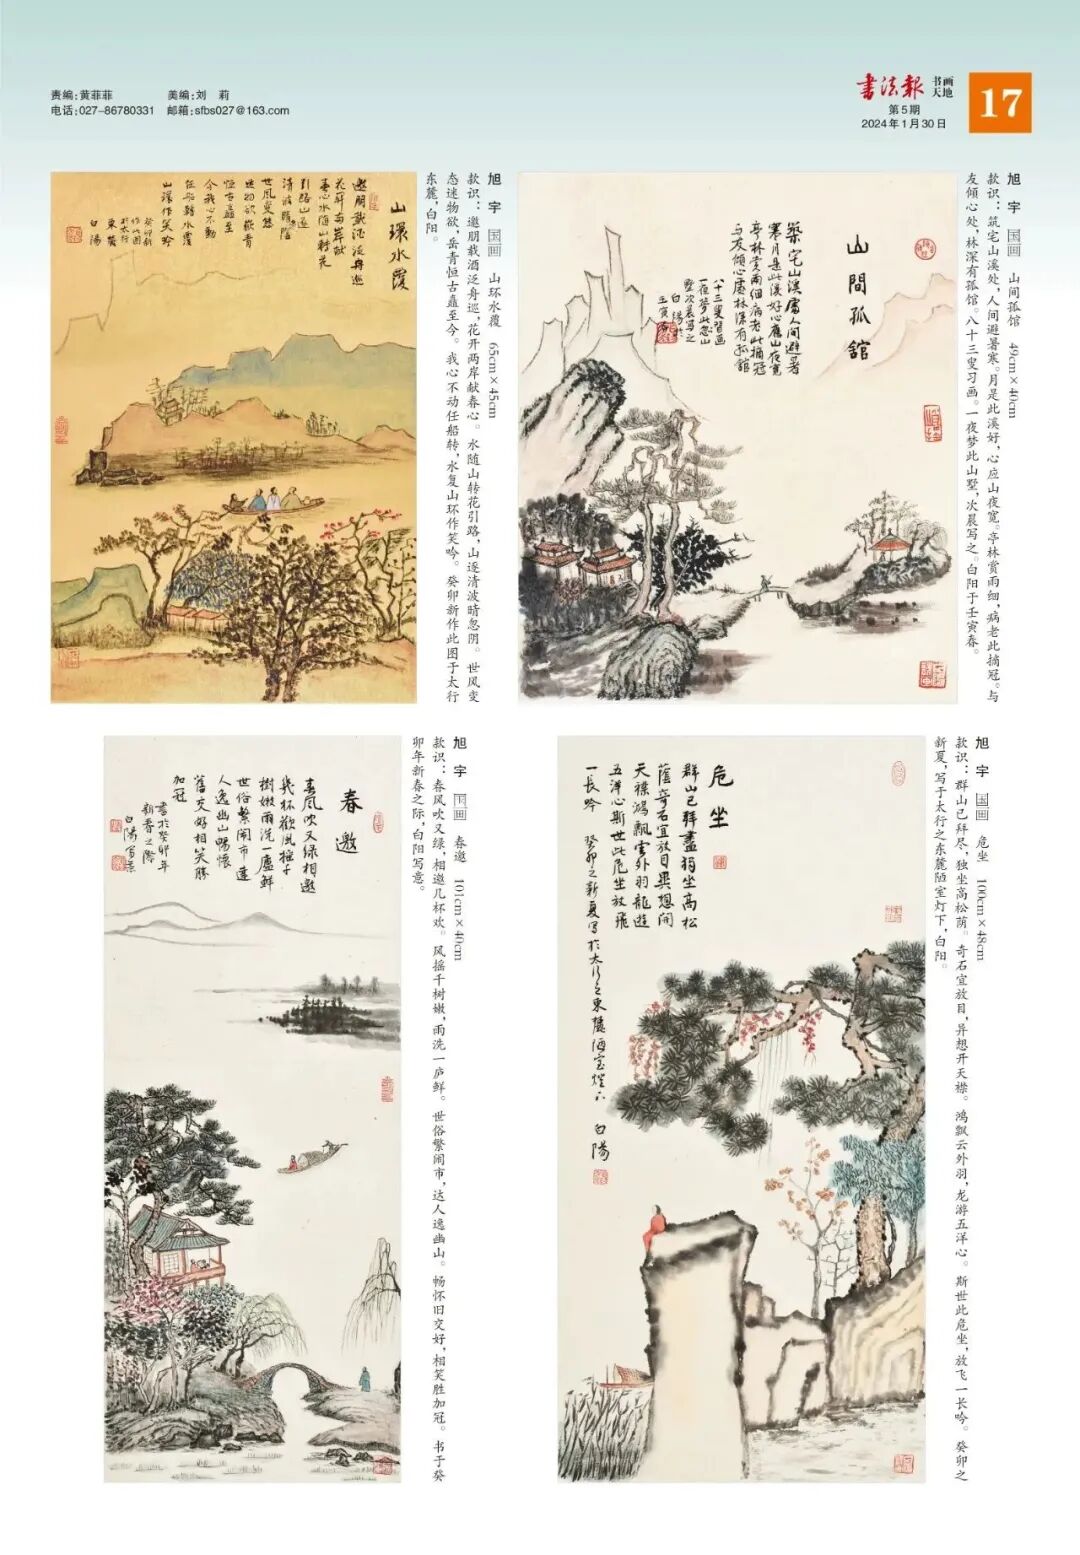 责编:黄菲菲 美编:刘 莉
电话:027-86780331 邮箱:sfbs027@163.com
书法报 书画天地
第5期
2024年1月30日
17
旭 宇 国画 山环水覆 65cm×45cm
款识:邀朋载酒泛舟巡,花开两岸献春心。水随山转花引路,山逐清波晴忽阴。世风变
态迷物欲,岳青恒古矗至今。我心不动任船转,水复山环作笑吟。癸卯新作此图于太行
东麓,白阳。
山環水覆
邀朋載酒泛舟巡
花開兩岸獻
春心水随山轉花
引路山逐
清波晴忽陰
世風變態
迷物欲嶽青
恒古矗至
今我心不動
任船轉水覆
山環作笑吟
癸卯新
作此图
於太行
東麓
白陽
旭 宇 国画 山间孤馆 49cm×40cm
款识:筑宅山溪处,人间避暑寒。月是此溪好,心应山夜宽。亭林赏雨细,病老此摘冠。与
友倾心处,林深有孤馆。八十三叟习画。一夜梦此山墅,次晨写之。白阳于壬寅春。
山間孤舘
築宅山溪處人間避暑
寒月是此溪好心應山夜寬
亭林賞雨細病老此摘冠
与友傾心處林深有孤舘
八十三叟習画
一夜夢此山
墅次晨写之
白陽於
壬寅春
旭 宇 国画 春邀 101cm×40cm
款识:春风吹又绿,相邀几杯欢。风摇千树嫩,雨洗一庐鲜。世俗繁闹市,达人逸幽山。畅怀旧交好,相笑胜加冠。书于癸
卯年新春之际,白阳写意。
春邀
春風吹又绿相邀
幾杯歡風摇千
樹嫩雨洗一廬鲜
世俗繁鬧市達
人逸幽山暢懷
舊交好相笑勝
加冠
書於癸卯年
新春之際
白陽写意
旭 宇 国画 危坐 100cm×48cm
款识:群山已拜尽,独坐高松荫。奇石宜放目,异想开天襟。鸿飘云外羽,龙游五洋心。斯世此危坐,放飞一长吟。癸卯之
新夏,写于太行之东麓陋室灯下,白阳。
危坐
群山已拜盡獨坐高松
蔭奇石宜放目異想開
天襟鴻飄雲外羽龍遊
五洋心斯世此危坐放飛
一長吟 癸卯之新夏写於太行之東麓陋室燈下 白陽